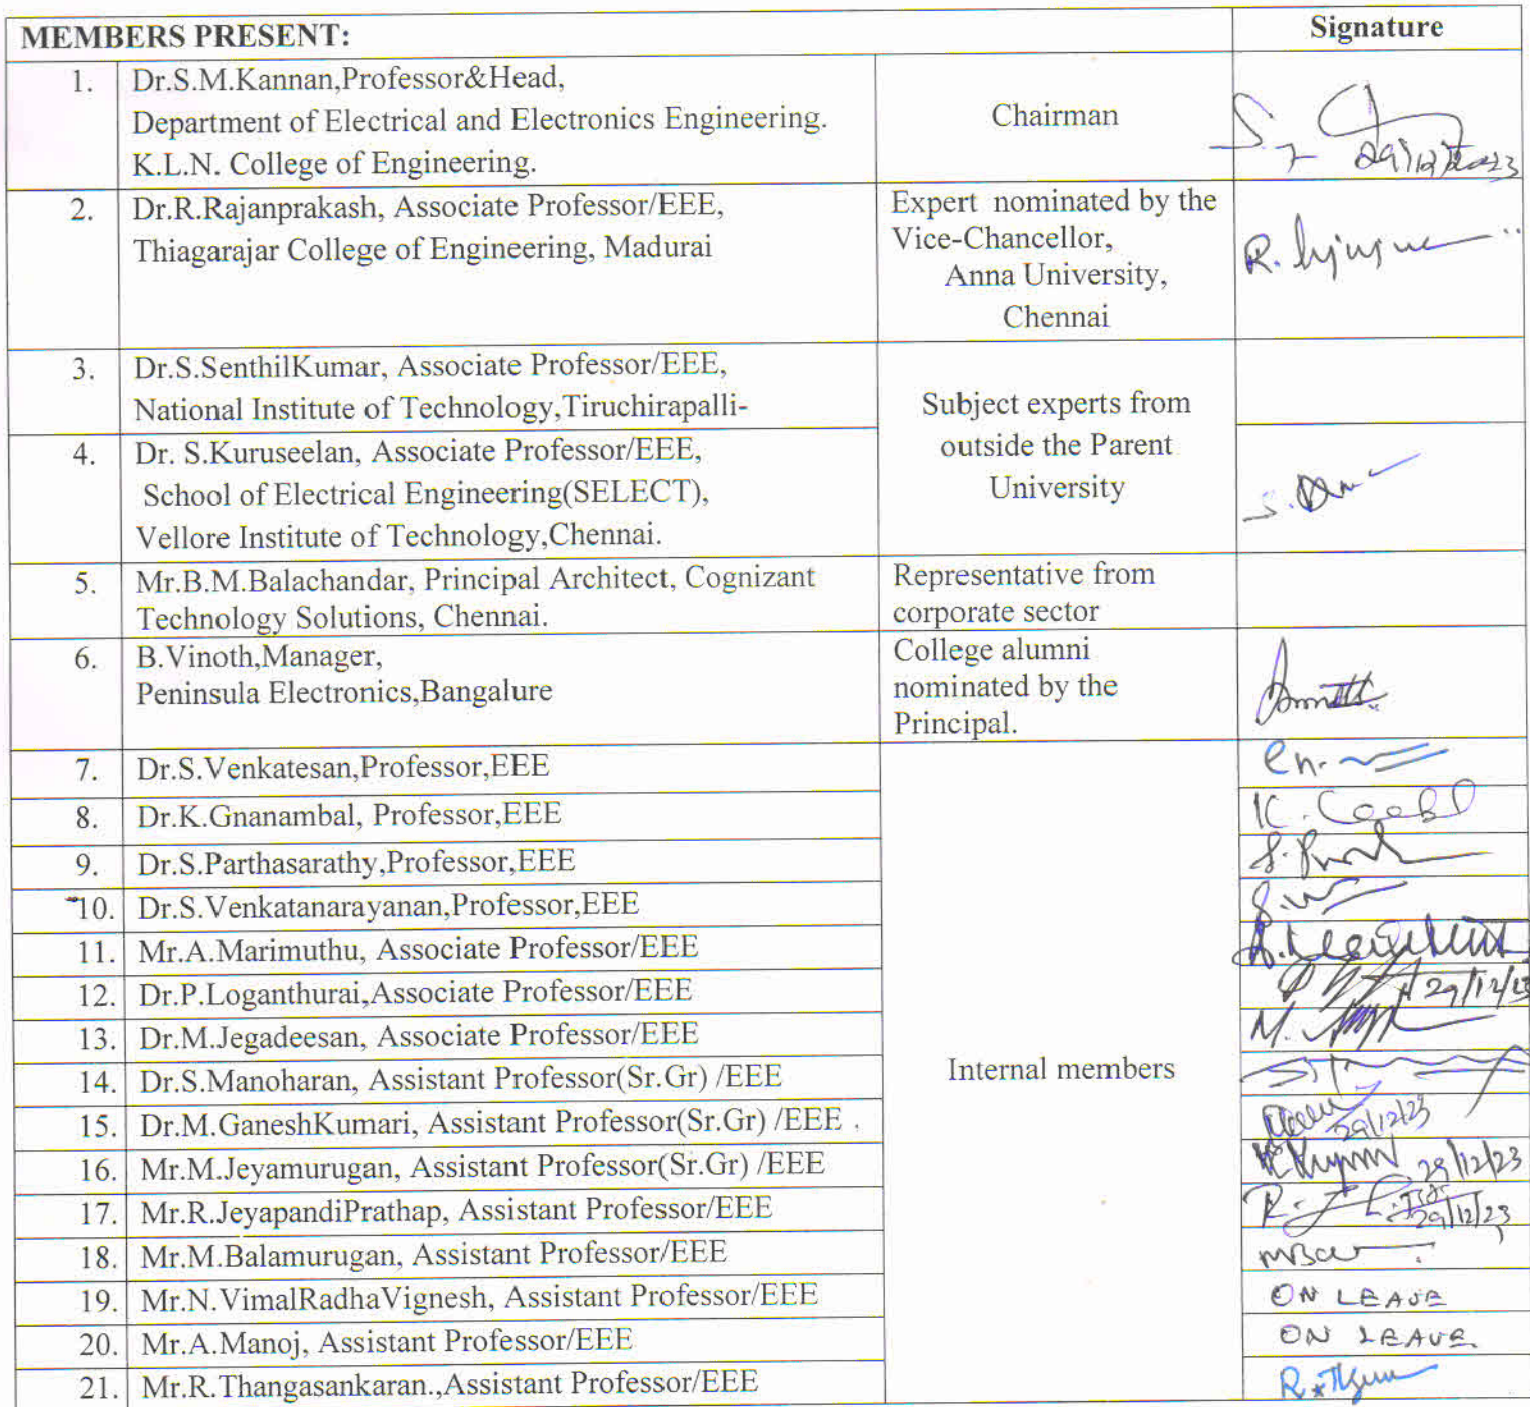 MEMBERS PRESENT:
Signature
1.
Dr.S.M.Kannan,Professor&Head,
Department of Electrical and Electronics Engineering.
K.L.N. College of Engineering.
Chairman
29/12/2023
2.
Dr.R.Rajanprakash, Associate Professor/EEE,
Thiagarajar College of Engineering, Madurai
Expert nominated by the
Vice-Chancellor,
Anna University,
Chennai
R.
3.
Dr.S.SenthilKumar, Associate Professor/EEE,
National Institute of Technology,Tiruchirapalli-
Subject experts from
outside the Parent
University
4.
Dr. S.Kuruseelan, Associate Professor/EEE,
School of Electrical Engineering(SELECT),
Vellore Institute of Technology,Chennai.
S.
5.
Mr.B.M.Balachandar, Principal Architect, Cognizant
Technology Solutions, Chennai.
Representative from
corporate sector
6.
B.Vinoth,Manager,
Peninsula Electronics,Bangalure
College alumni
nominated by the
Principal.
7.
Dr.S.Venkatesan,Professor,EEE
Internal members
8.
Dr.K.Gnanambal, Professor,EEE
K.
9.
Dr.S.Parthasarathy,Professor,EEE
10.
Dr.S.Venkatanarayanan,Professor,EEE
11.
Mr.A.Marimuthu, Associate Professor/EEE
12.
Dr.P.Loganthurai,Associate Professor/EEE
29/12/23
13.
Dr.M.Jegadeesan, Associate Professor/EEE
M.
14.
Dr.S.Manoharan, Assistant Professor(Sr.Gr) /EEE
15.
Dr.M.GaneshKumari, Assistant Professor(Sr.Gr) /EEE .
29/12/23
16.
Mr.M.Jeyamurugan, Assistant Professor(Sr.Gr) /EEE
29/12/23
17.
Mr.R.JeyapandiPrathap, Assistant Professor/EEE
29/12/23
18.
Mr.M.Balamurugan, Assistant Professor/EEE
19.
Mr.N.VimalRadhaVignesh, Assistant Professor/EEE
ON LEAVE
20.
Mr.A.Manoj, Assistant Professor/EEE
ON LEAVE
21.
Mr.R.Thangasankaran.,Assistant Professor/EEE